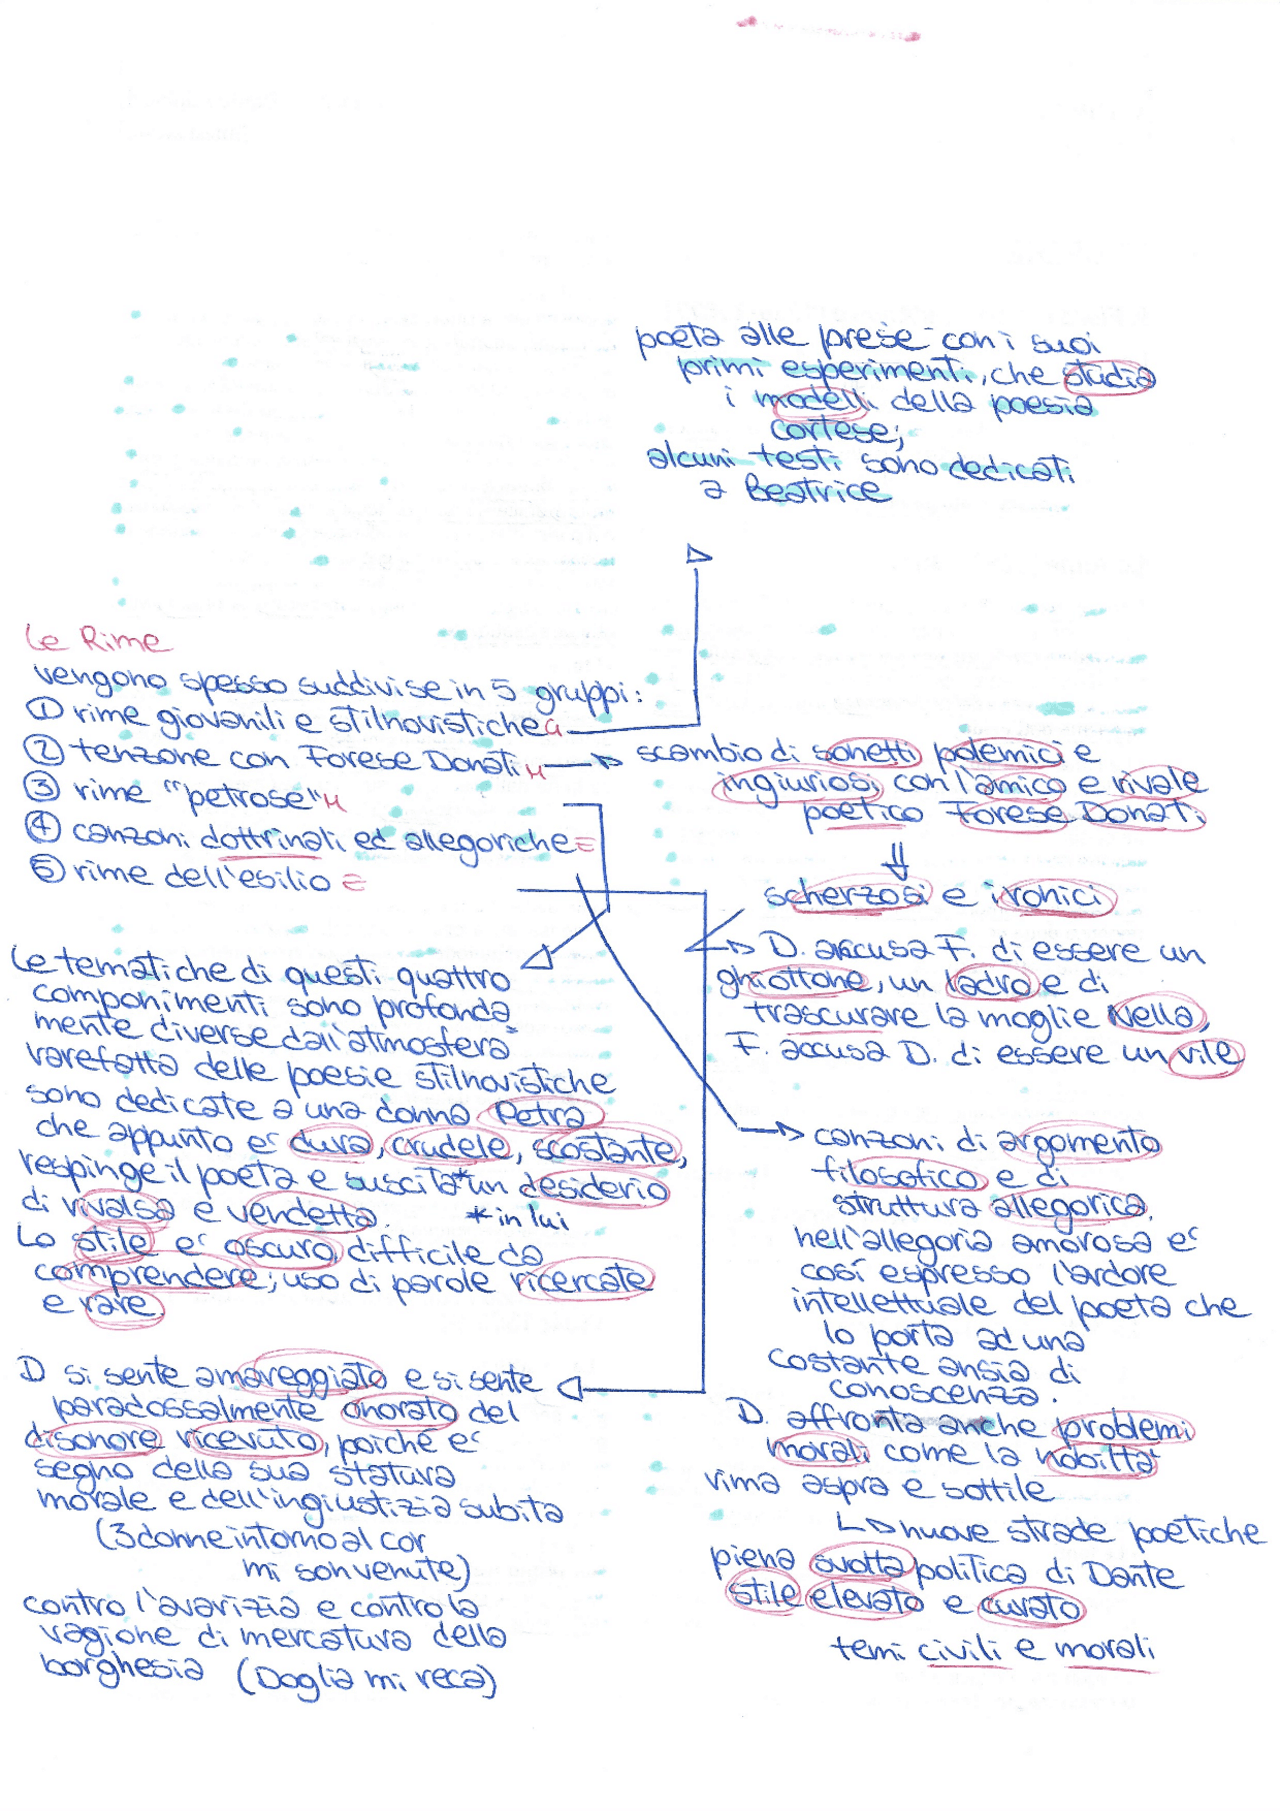 poeta alle prese con i suoi
primi esperimenti, che studia
i modelli della poesia
cortese;
alcuni testi sono dedicati
a Beatrice
Le Rime
vengono spesso suddivise in 5 gruppi:
① rime giovanili e stilnovistiche
② tenzone con Forese Donati
③ rime "petrose"
④ canzoni dottrinali ed allegoriche
⑤ rime dell'esilio
scambio di sonetti polemici e
ingiuriosi con l'amico e rivale
poetico Forese Donati
scherzosi e ironici
D. accusa F. di essere un
ghiottone, un ladro e di
trascurare la moglie Nella,
F. accusa D. di essere un vile
Le tematiche di questi quattro
componimenti sono profonda=
mente diverse dall'atmosfera
rarefatta delle poesie stilnovistiche
sono dedicate a una donna Petra
che appunto e' dura, crudele, scostante,
respinge il poeta e suscita* un desiderio
di rivalsa e vendetta. * in lui
Lo stile e' oscuro difficile da
comprendere; uso di parole ricercate
e rare.
canzoni di argomento
filosofico e di
struttura allegorica.
nell'allegoria amorosa e'
così espresso l'ardore
intellettuale del poeta che
lo porta ad una
costante ansia di
conoscenza.
D. affronta anche problemi
morali come la nobiltà
rima aspra e sottile
nuove strade poetiche
piena svolta politica di Dante
stile elevato e curato
temi civili e morali
D si sente amareggiato e si sente
paradossalmente onorato del
disonore ricevuto, poiché e'
segno della sua statura
morale e dell'ingiustizia subita
(3 donne intorno al cor
mi son venute)
contro l'avarizia e contro la
ragione di mercatura della
borghesia (Doglia mi reca)